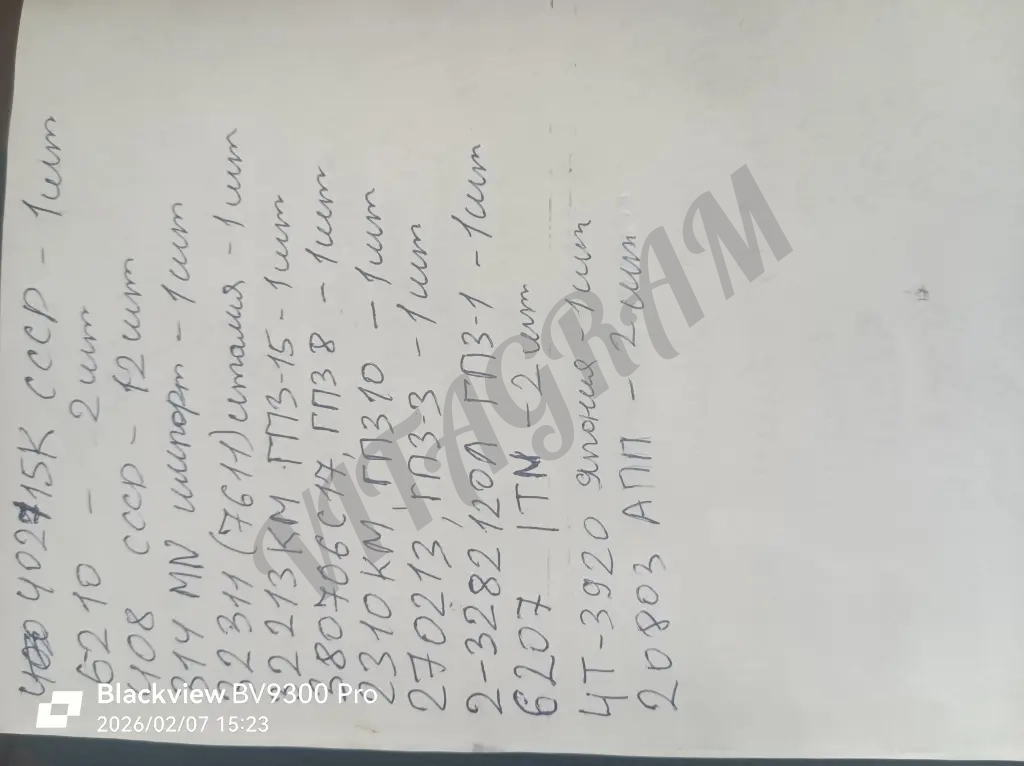 402715К СССР - 1шт
6210 - 2шт
408 СССР - 12шт
314 MN импорт - 1шт
32311 (7611) италия - 1шт
32213КМ ГПЗ-15 - 1шт
380706С17, ГПЗ 8 - 1шт
2310КМ, ГПЗ10 - 1шт
270213, ГПЗ-3 - 1шт
2-3282120Л ГПЗ-1 - 1шт
6207 ITM - 2шт
4Т-3920 япония - 1шт
20803 АПП - 2шт
VITAGRAM
Blackview BV9300 Pro
2026/02/07 15:23